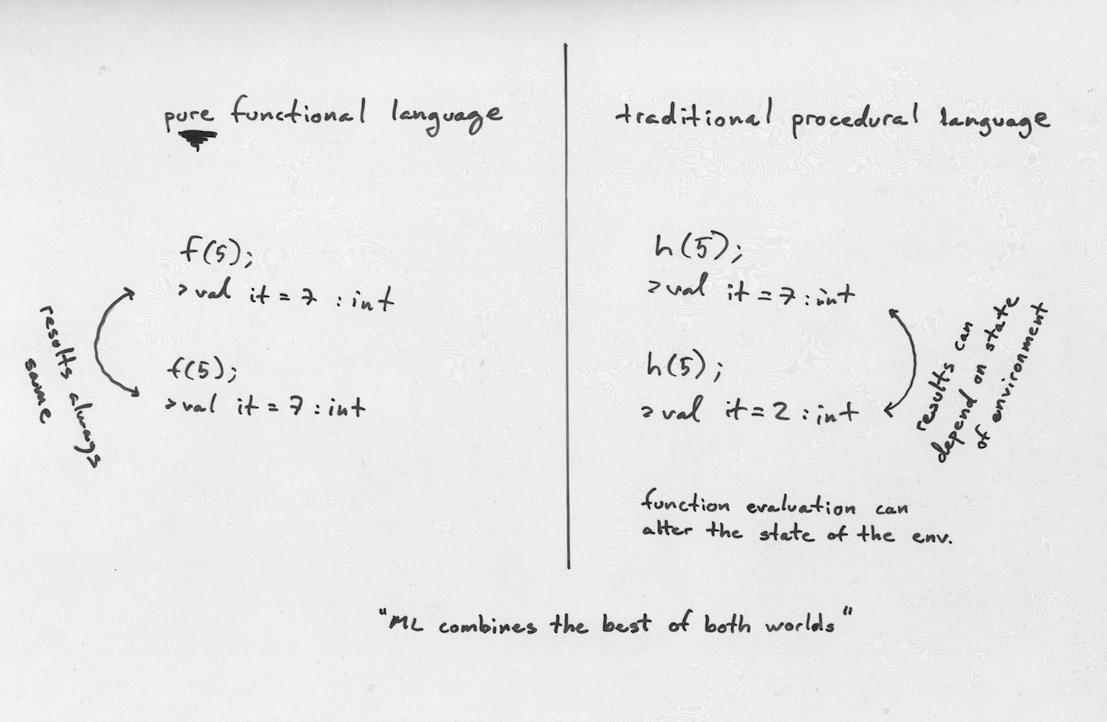 pure functional language
f(5);
> val it = 7 : int
f(5);
> val it = 7 : int
results always
same
traditional procedural language
h(5);
> val it = 7 : int
h(5);
> val it = 2 : int
results can
depend on state
of environment
function evaluation can
alter the state of the env.
"ML combines the best of both worlds"